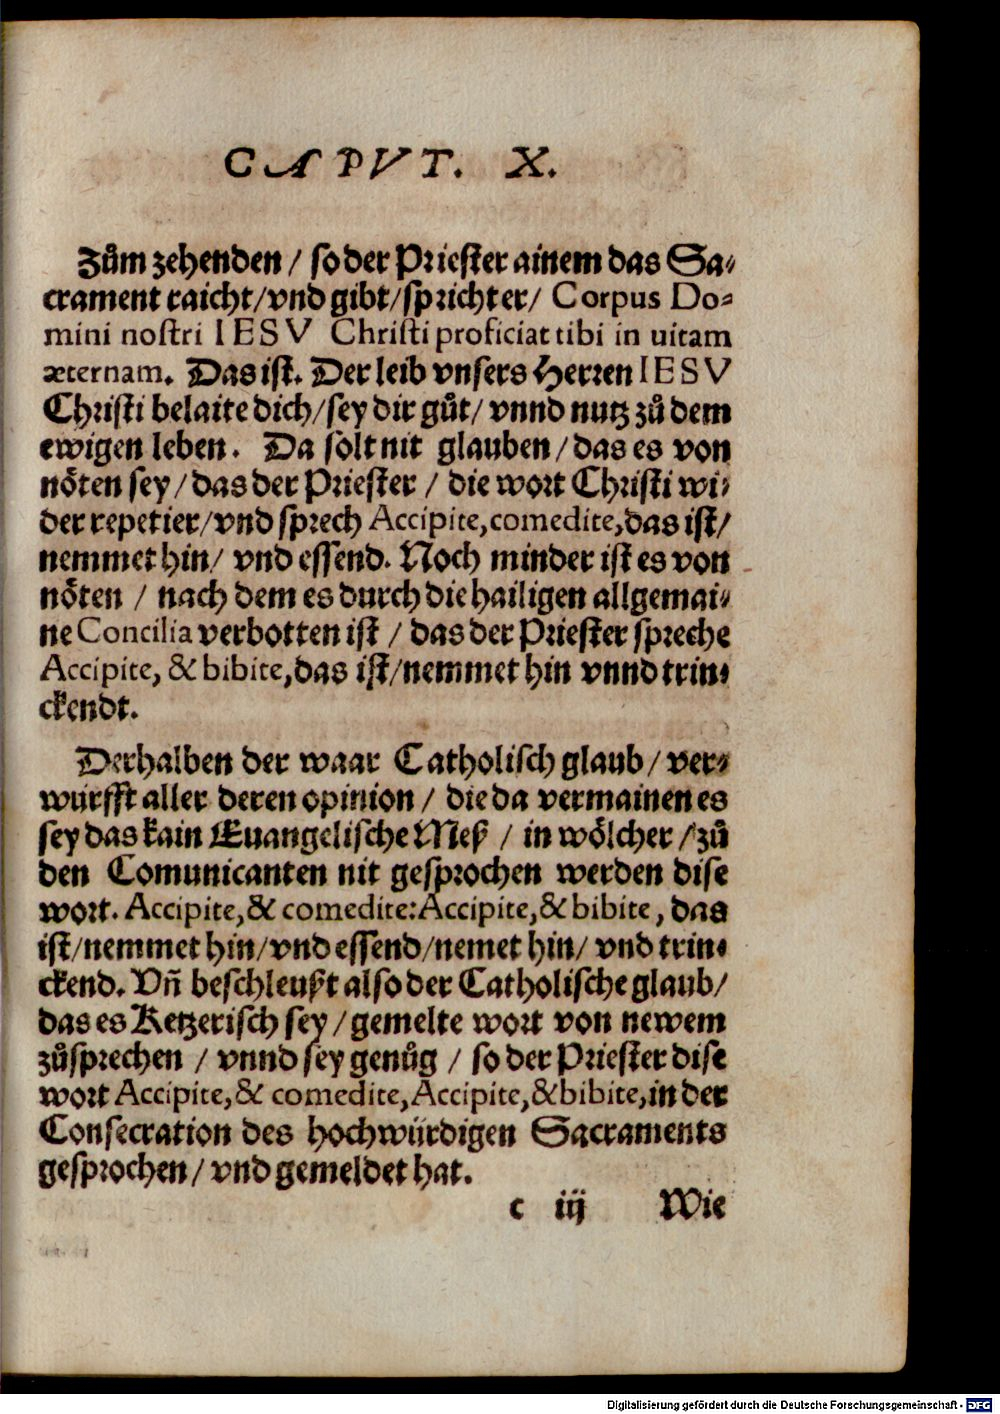 CAPVT. X.
Zům zehenden / so der Priester ainem das Sa-
crament raicht/vnd gibt/spricht er/ Corpus Do-
mini nostri IESV Christi proficiat tibi in uitam
æternam. Das ist. Der leib vnsers Herren IESV
Christi belaite dich/sey dir gůt/ vnnd nutz zů dem
ewigen leben. Da solt nit glauben/das es von
nöten sey/das der Priester / die wort Christi wi-
der repetier/vnd sprech Accipite,comedite,das ist/
nemmet hin/ vnd essend. Noch minder ist es von
nöten / nach dem es durch die hailigen allgemai-
ne Concilia verbotten ist / das der Priester spreche
Accipite, & bibite,das ist/nemmet hin vnnd trin-
ckendt.
Derhalben der waar Catholisch glaub/ ver-
würfft aller deren opinion / die da vermainen es
sey das kain Euangelische Meß / in wölcher / zů
den Comunicanten nit gesprochen werden dise
wort. Accipite,& comedite:Accipite,& bibite, das
ist/nemmet hin/vnd essend/nemet hin/ vnd trin-
ckend. Vñ beschleußt also der Catholische glaub/
das es Ketzerisch sey/gemelte wort von newem
zůsprechen / vnnd sey genůg / so der Priester dise
wort Accipite,& comedite,Accipite,&bibite,in der
Consecration des hochwürdigen Sacraments
gesprochen/ vnd gemeldet hat.
c iij Wie
Digitalisierung gefördert durch die Deutsche Forschungsgemeinschaft - DFG